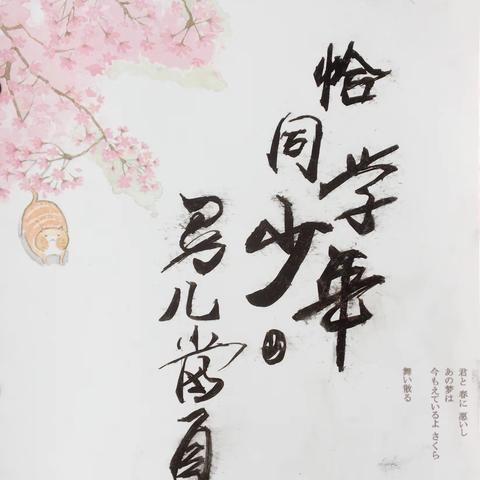 恰同学少年
男儿當自
君と 春に 愿いし
あの梦は
今もえているよ さくら
舞い散る